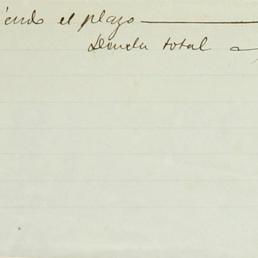 iendo el plazo
Deuda total a